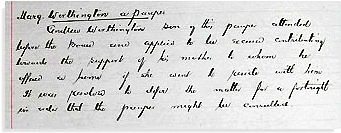 Marg. Worthington a Pauper
Andrew Worthington son of this pauper attended
before the Board and applied to be excused contributing
towards the support of his mother to whom he
offered a home if she went to reside with him
It was resolved to defer the matter for a fortnight
in order that the pauper might be consulted.